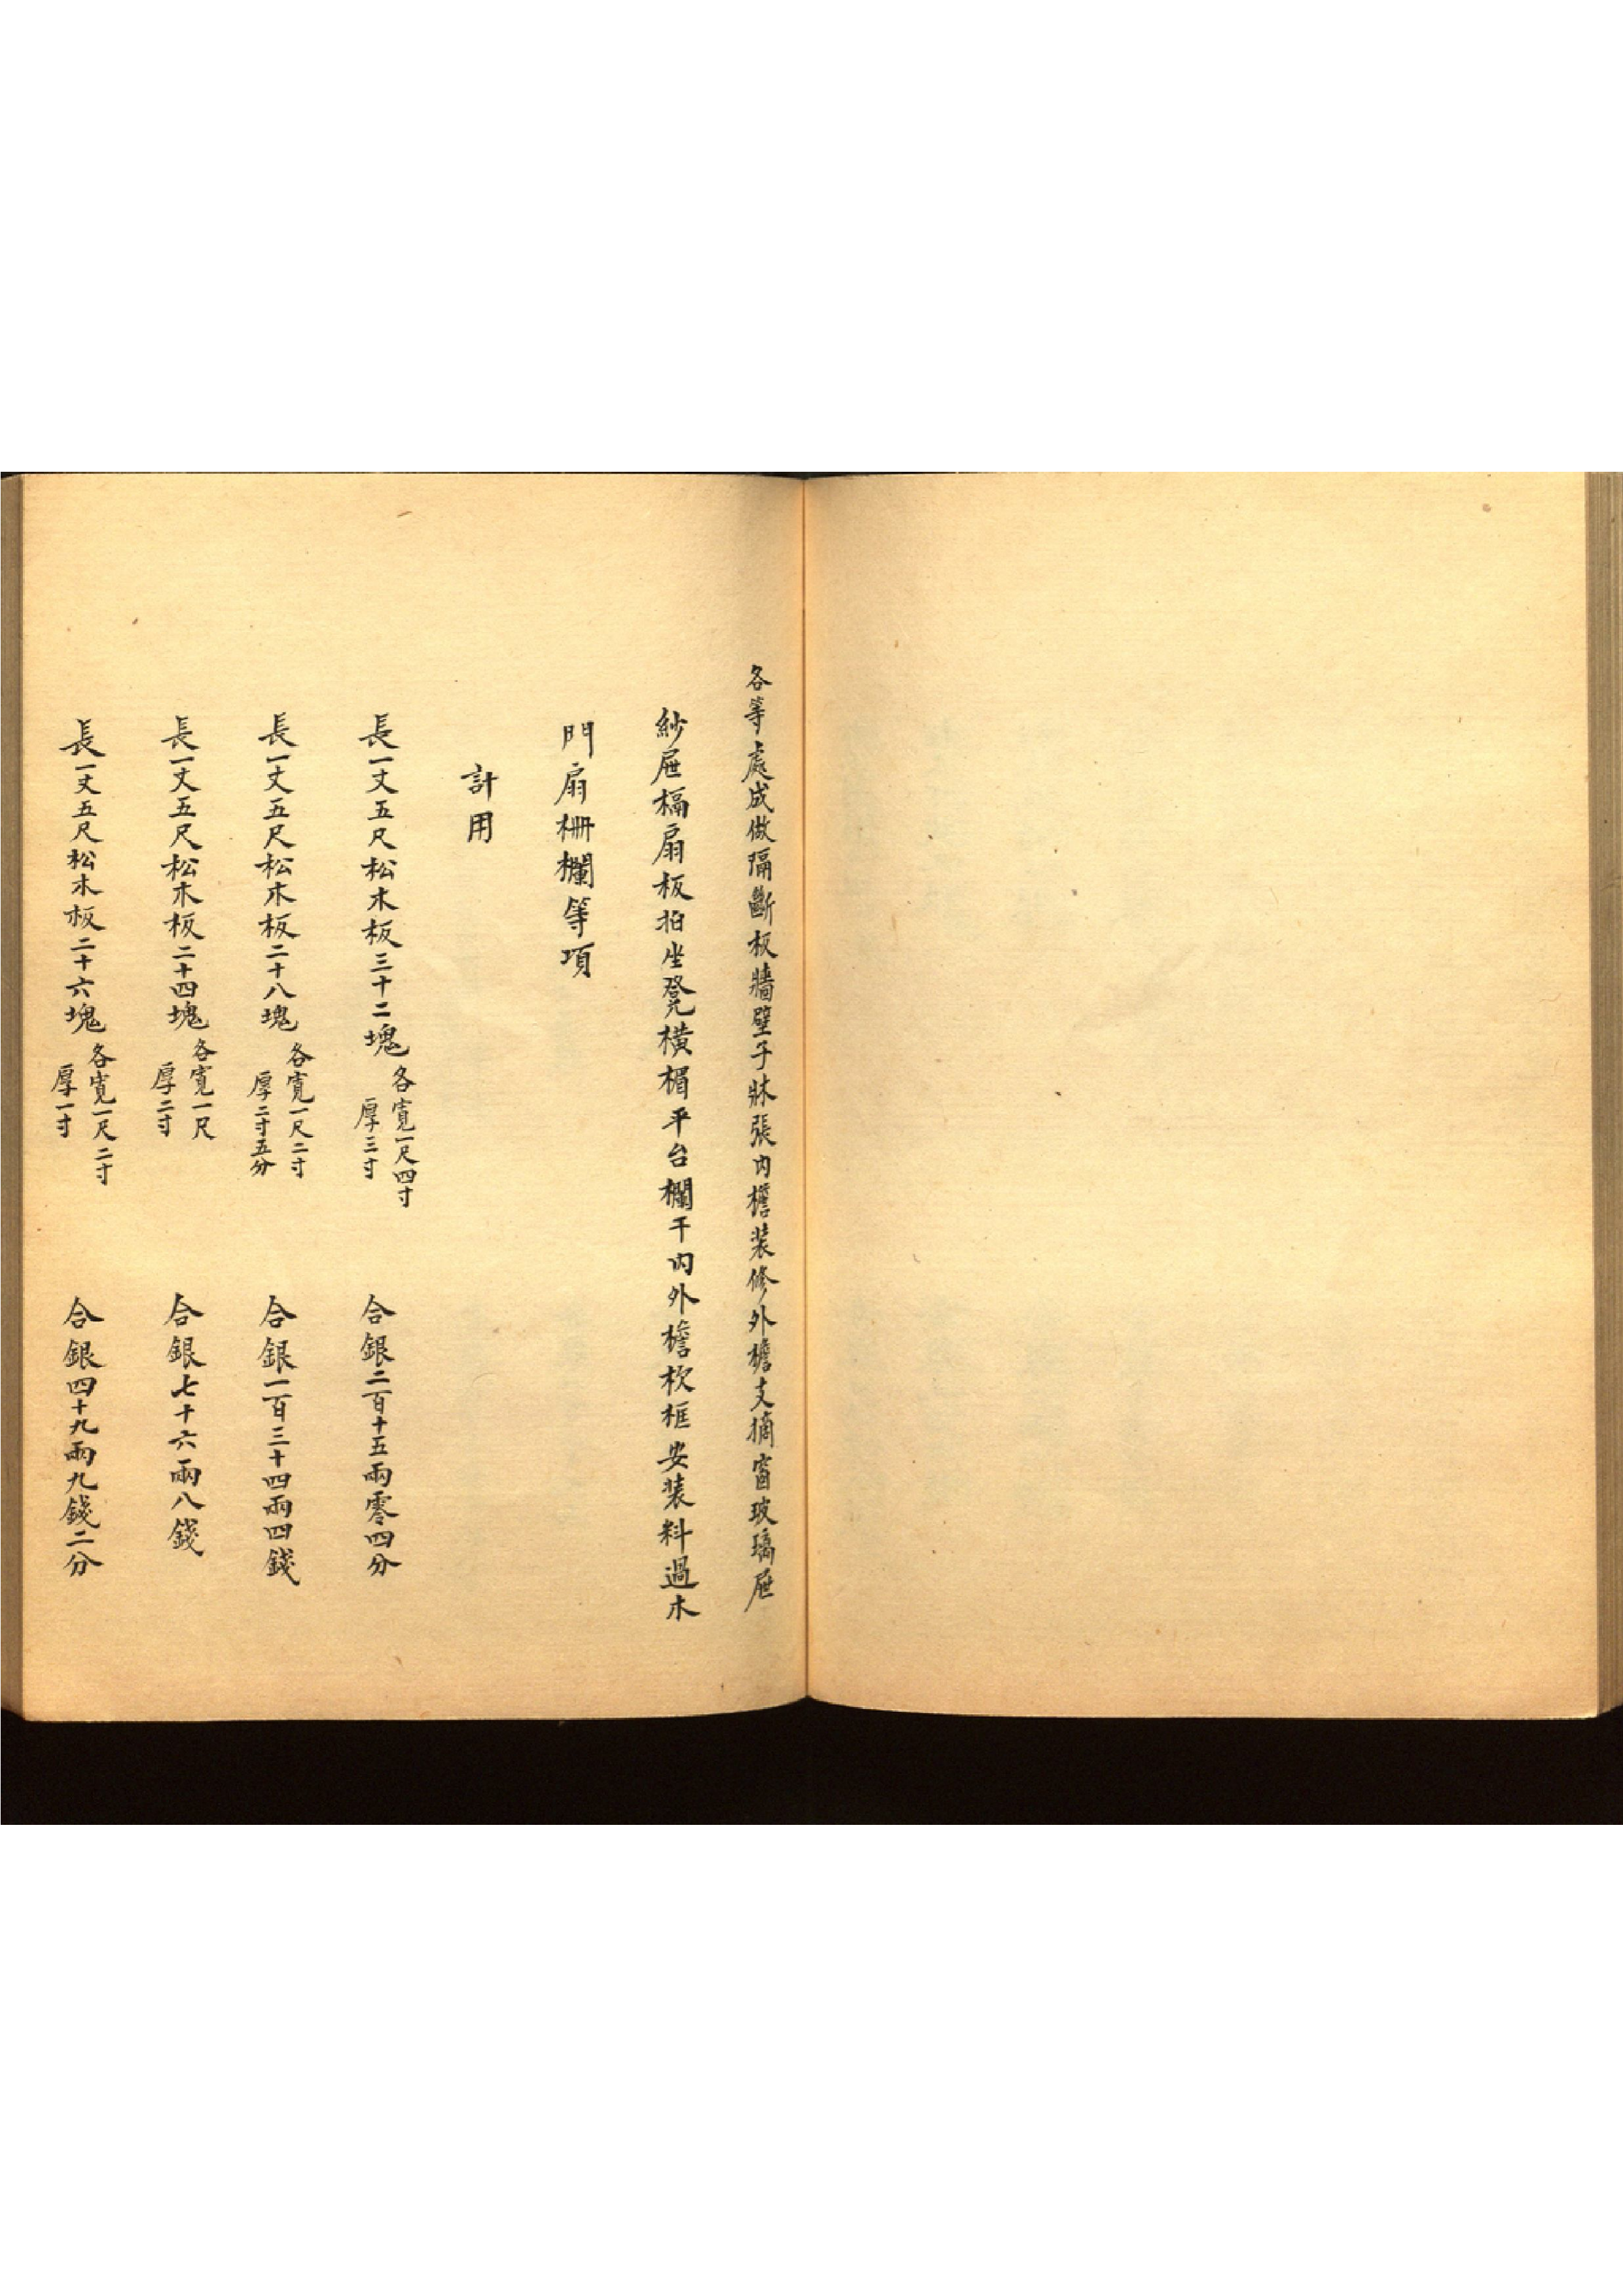 各等處成做隔斷板牆壁子牀張内檐装修外檐支摘窗玻璃屜
紗屜槅扇板拍坐凳横楣平台欄干内外檐栨框安装料過木
門扇栅欄等項
計用
長一丈五尺松木板三十二塊
各寛一尺四寸
厚三寸
合銀二百十五兩零四分
長一丈五尺松木板二十八塊
各寛一尺二寸
厚二寸五分
合銀一百三十四兩四錢
長一丈五尺松木板二十四塊
各寛一尺
厚二寸
合銀七十六兩八錢
長一丈五尺松木板二十六塊
各寛一尺二寸
厚一寸
合銀四十九兩九錢二分